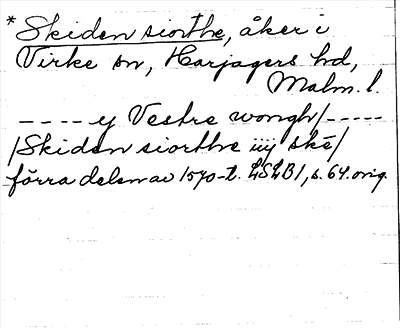 * Skiden siorthe, åker i
Virke sn, Harjagers hd,
Malm. l.
---- y Vestre wongh/-----
/Skiden siorthe iiij skē/
förra delen av 1570-t. LSLB1, s. 64. orig.